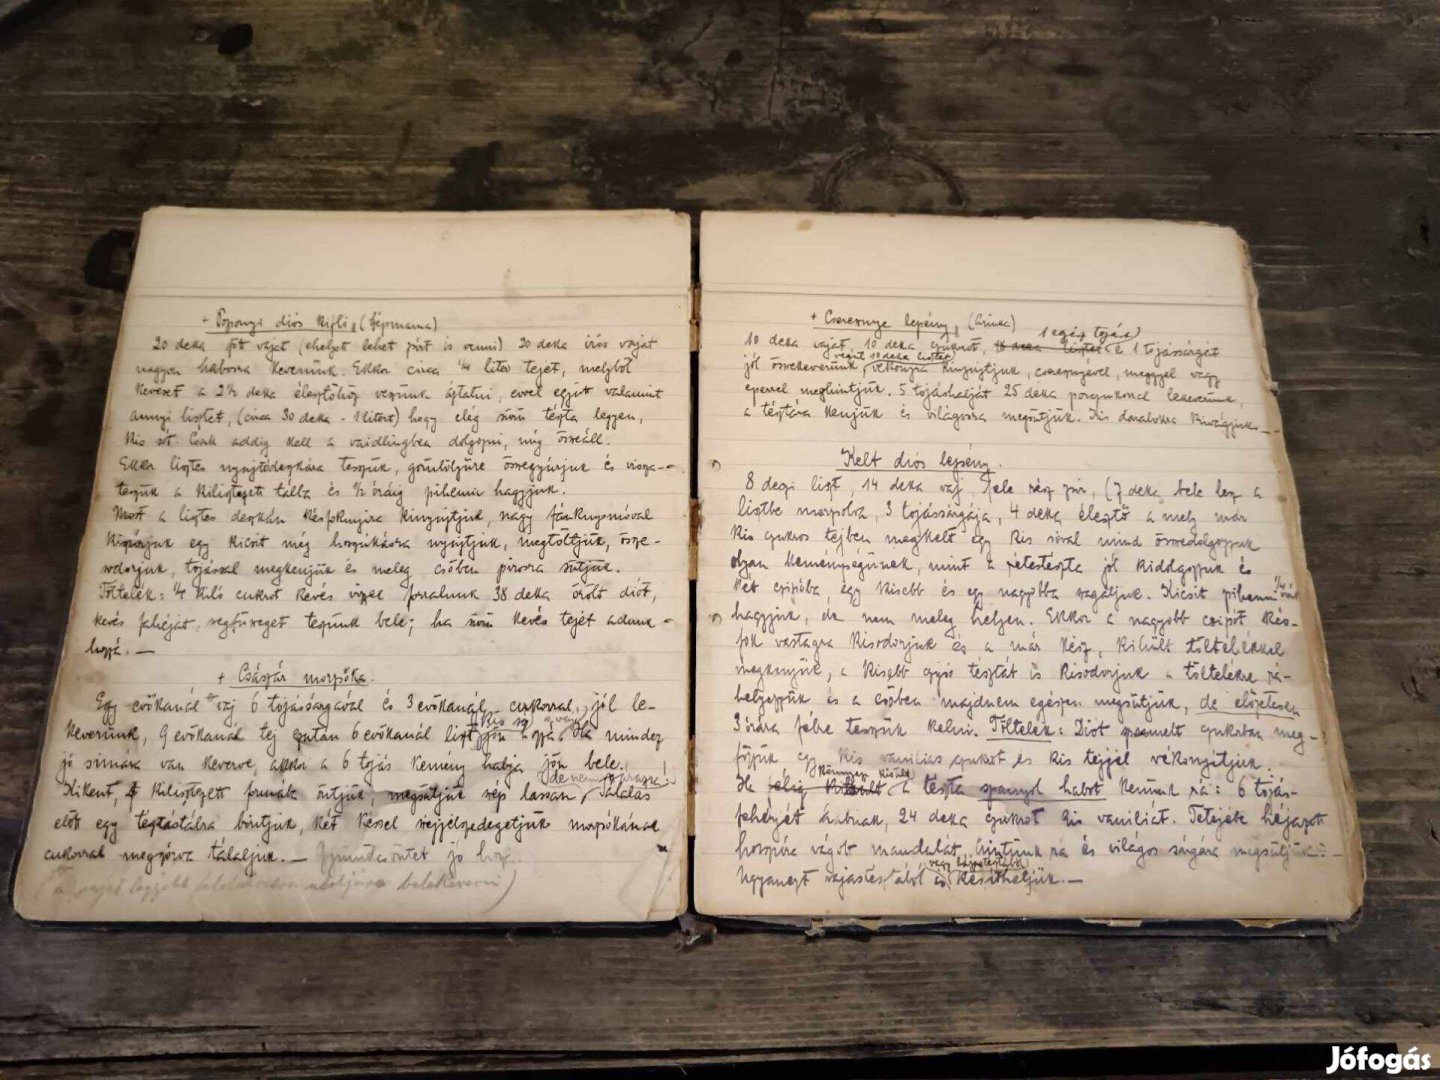 + Pozsonyi diós kifli, (Gépmama)
20 deka főtt vajat (ehelyett lehet zsírt is venni) 20 deka írós vajat
nagyon habosra keverünk. Ekkor circa ¼ liter tejet, melyből
keveset a 2½ deka élesztőhöz veszünk áztatni, evvel együtt valamint
annyi lisztet, (circa 30 deka - 1 liter) hogy elég sűrű tészta legyen,
kis sót. Csak addig kell a vaidlingban dolgozni, míg összeáll.
Ekkor lisztes nyujtódeszkára tesszük, gömbölyűre összegyúrjuk és vissza-
tesszük a kilisztezett tálba és ½ óráig pihenni hagyjuk.
Most a lisztes deszkán késfoknyira kinyujtjuk, nagy fánknyomóval
kiszúrjuk egy kicsit még hosszúkásra nyujtjuk, megtöltjük, össze-
sodorjuk, tojással megkenjük és meleg csőben pirosra sütjük.
Töltelék: ¼ kiló cukrot kevés vízzel forralunk 38 deka őrölt diót,
kevés fahéjat, szegfűszeget teszünk bele; ha sűrű kevés tejet adunk
hozzá. —
+ Császár morzsóka.
Egy evőkanál vaj 6 tojássárgával és 3 evőkanál cukorral, jól le-
keverünk, 9 evőkanál tej azután 6 evőkanál liszt jön hozzá. Ha mindez
kis só
jó simára van keverve, akkor a 6 tojás kemény habja jön bele.
Kikent, kilisztezett formába öntjük, megsütjük szép lassan, Tálalás
előtt egy tésztástálra borítjuk, két késsel széjjelszedegetjük morzsókának
cukorral megszórva tálaljuk. — Gyümölcsöntet jó hozzá.
+ Cseresznye lepény, (Arinka)
1 egész tojás
10 deka vajat, 10 deka cukrot, 10 deka lisztet és 1 tojássárgát
végül 10 deka lisztet
jól összekeverünk, vékonyra kinyujtjuk, cseresznyével, meggyel vagy
eperrel meghintjük. 5 tojáshabját 25 deka porcukorral lekeverünk,
a tésztára kenjük és világosra megsütjük. Kis darabokra kivágjuk. —
Kelt diós lepény.
8 deci liszt, 14 deka vaj, fele rész zsír, (7 deka bele lesz a
lisztbe morzsolva, 3 tojássárgája, 4 deka élesztő a mely már
kis cukros tejben megkelt egy kis sóval mind összedolgozzuk
olyan keménységűnek, mint a rétestészta jól kidolgozzuk és
két cipóba, egy kisebb és egy nagyobba vágjuk. Kicsit pihenni ¼ órát
hagyjuk, de nem meleg helyen. Ekkor a nagyobb cipót kés-
fok vastagra kisodorjuk és a már kész, kihült töltelékkel
megkenjük, a kisebb cipó tésztát is kisodorjuk a töltelékre rá-
helyezzük és a csőben majdnem egészen megsütjük, de előzetesen
3 órára félre tesszük kelni. Töltelék: Diót szemelt cukorban meg-
főzzük, egy kis vaníliás cukrot és kis tejjel vékonyítjuk.
Ha félig kisült a tészta spanyol habot kenünk rá: 6 tojás-
fehérjét árulnak, 24 deka cukrot kis vaníliát. Tetejébe héjazott
hosszúra vágott mandulát, hintünk rá és világos sárgára megsütjük. —
vagy
Ugyanezt vajastésztából is készíthetjük. —
Jófogás